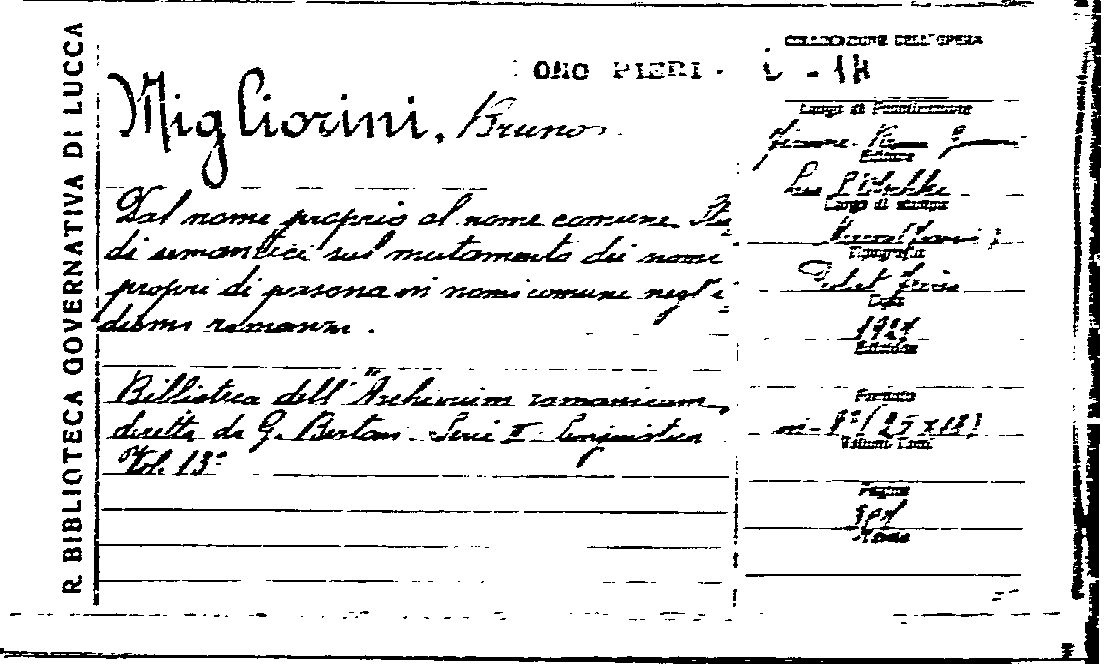 R. BIBLIOTECA GOVERNATIVA DI LUCCA
COLLOCAZIONE DELL'OPERA
ONO PIERI -
Migliorini, Bruno
Dal nome proprio al nome comune. Stu
di semantici sul mutamento dei nomi
propri di persona in nomi comune negl'i
diomi romanzi.
Biblioteca dell'"Archivum romanicum,
diretta da G. Bertoni - Serie II - Linguistica
Vol. 13°
Luogo di Pubblicazione
Editore
Leo S. Olschki
Luogo di stampa
Tipografia
Data
1927
Edizione
Formato
in-8° (25x18)
Volumi Tomi
Pagine
Tavole